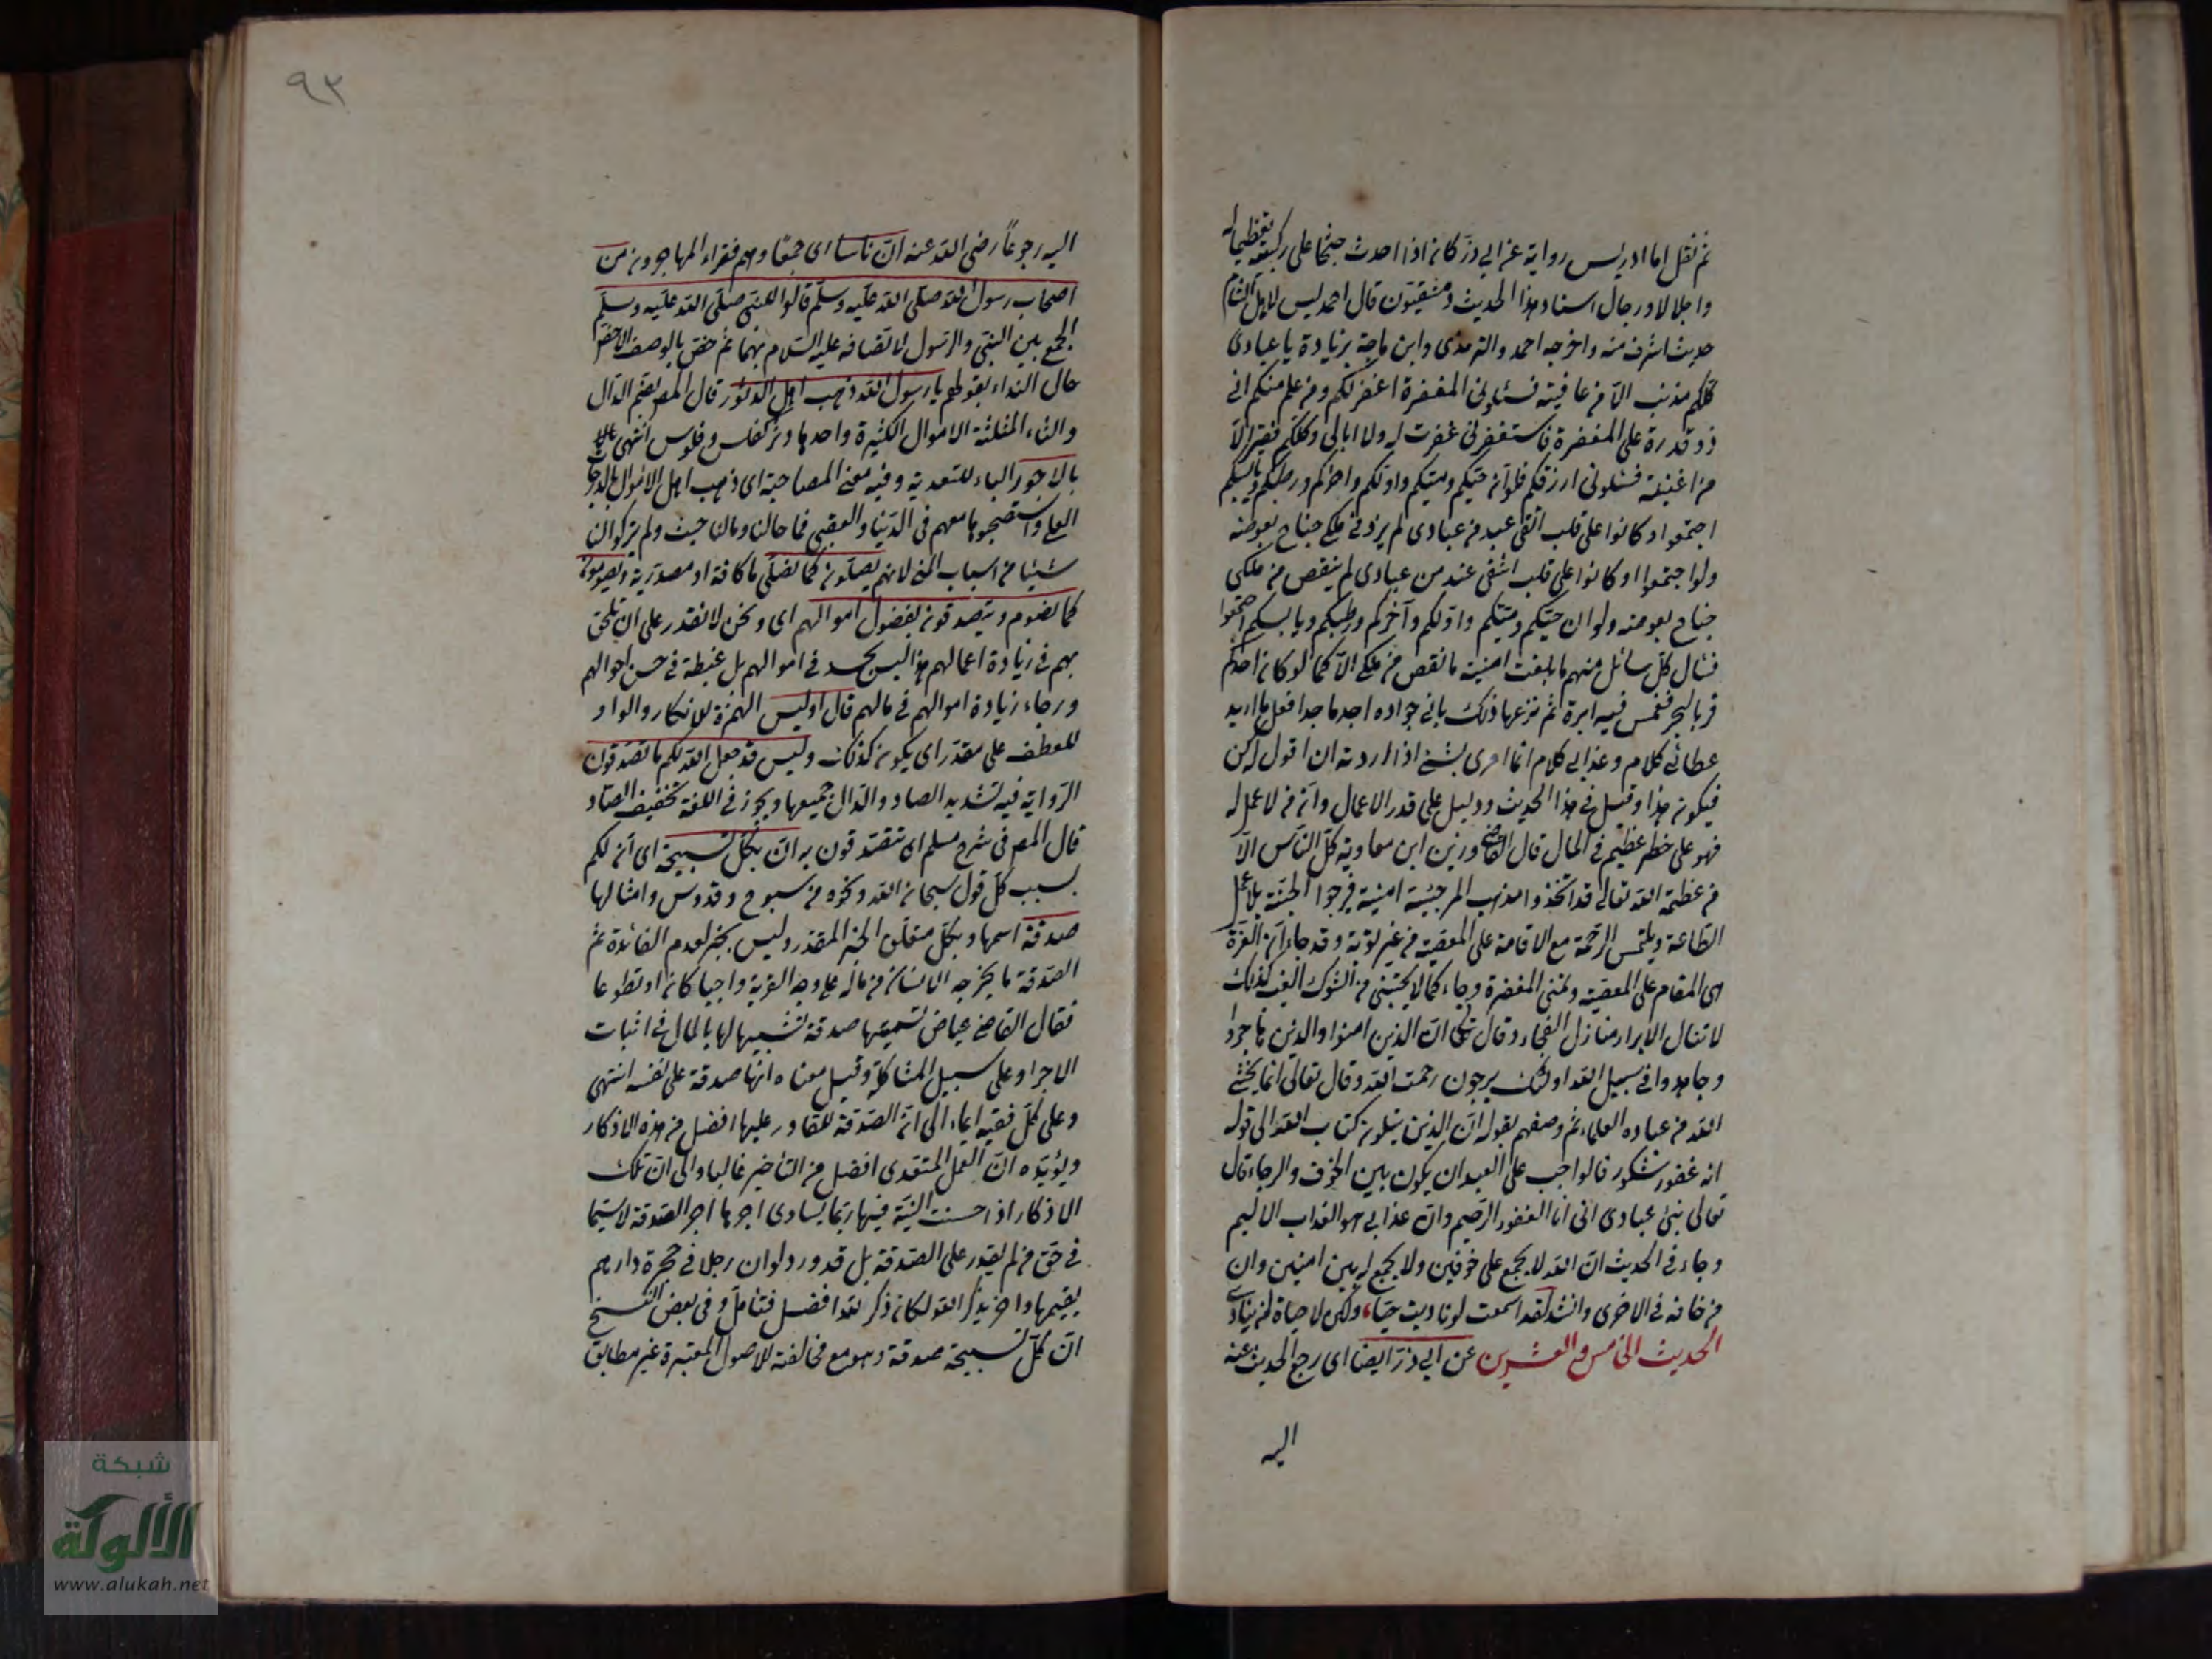 ثم نقل اما ادريس رواية عن ابى ذر كان اذا احدث جثا على ركبتيه تعظيما له
واجلالا ورجال اسناد هذا الحديث دمشقيون قال احمد ليس لاهل الشام
حديث اشرف منه واخرجه احمد والترمذى وابن ماجة بزيادة يا عبادى
كلكم مذنب الا من عافيته فسئلونى المغفرة اغفر لكم ومن علم منكم انى
ذو قدرة على المغفرة فاستغفرنى غفرت له ولا ابالى وكلكم فقير الا
من اغنيته فسئلونى ارزقكم فلو ان حيكم وميتكم واولكم واخركم ورطبكم ويابسكم
اجتمعوا وكانوا على قلب اتقى عبد من عبادى لم يزد فى ملكى جناح بعوضة
ولو اجتمعوا او كانوا على قلب اشقى عبد من عبادى لم ينقص من ملكى
جناح بعوضة ولو ان حيكم وميتكم واولكم وآخركم ورطبكم ويابسكم اجتمعوا
فسأل كل سائل منهم ما بلغت امنيته ما نقص من ملكى الا كما لو كان احدكم
مر بالبحر فغمس فيه ابرة ثم نزعها ذلك بانى جواد اجد ماجد افعل ما اريد
عطائى كلام وعذابى كلام انما امرى بشئ اذا اردته ان اقول له كن
فيكون هذا وقيل فى هذا الحديث ودليل على قدر الاعمال وان من لا عمل له
فهو على خطر عظيم فى المال قال القاضى ورزين ابن معاوية كل الناس الا
من عظمة الله تعالى قد اتخذوا مذهب المرجئية امنية فرجوا الجنة بلا عمل
الطاعة ويلتمس الرحمة مع الاقامة على المعصية من غير توبة وقد جاء ان الغرة
هى المقام على المعصية وتمنى المغفرة وجاء كما لا يجتنى من الشوك العنب كذلك
لا تنال الابرار منازل الفجار وقال تعالى ان الذين امنوا والذين هاجروا
وجاهدوا فى سبيل الله اولئك يرجون رحمت الله وقال تعالى انما يخشى
الله من عباده العلماء ثم وصفهم بقوله ان الذين يتلون كتاب الله الى قوله
انه غفور شكور فالواجب على العبد ان يكون بين الخوف والرجاء قال
تعالى نبئ عبادى انى انا الغفور الرحيم وان عذابى هو العذاب الاليم
وجاء فى الحديث ان الله لا يجمع على خوفين ولا يجمع له بين امنين وان
من خافه فى الاخرى وانشد لقد اسمعت لو ناديت حيا، ولكن لا حياة لمن ينادى
الحديث الخامس والعشرين عن ابى ذر ايضا اى رجع الحديث عنه
اليه
٩٣
اليه رجوعاً رضى الله عنه ان ناسا اى جمعا وهم فقراء المهاجرون من
اصحاب رسول الله صلى الله عليه وسلم قالوا للنبى صلى الله عليه وسلم
الجمع بين النبى والرسول لاتصافه عليه السلام بهما ثم خص بالوصف الاخص
حال النداء بقولهم يا رسول الله ذهب اهل الدثور قال المص بضم الدال
والثاء المثلثة الاموال الكثيرة واحدها دثر كفلس وفلوس انتهى
بالاجور الباء للتعدية وفيه معنى المصاحبة اى ذهب اهل الاموال بالدرجات
العلى واستصحبوها معهم فى الدنيا والعقبى فما حالنا ومالنا حيث ولم يتركوا لنا
شيئا من اسباب المنى لانهم يصلون كما نصلى ما كافة او مصدرية ويصومون
كما نصوم ويتصدقون بفضول اموالهم اى ونحن لا نقدر على ان نلحق
بهم فى زيادة اعمالهم هذا ليس بحسد فى اموالهم بل غبطة فى حسن احوالهم
ورجاء زيادة اموالهم فى مالهم قال اوليس الهمزة للانكار والواو
للعطف على مقدر اى يكون كذلك وليس قد جعل الله لكم ما تصدقون
الرواية فيه تشديد الصاد والدال جميعها ويجوز فى اللغة تخفيف الصاد
قال المص فى شرح مسلم اى تتصدقون به ان بكل تسبيحة اى ان لكم
بسبب كل قول سبحان الله ونحوه من سبوح وقدوس وامثالها
صدقة اسمها وبكل متعلق الخبر المقدر وليس بخبر لعدم الفائدة ثم
الصدقة ما يخرجه الانسان من ماله على وجه القربة واجبا كان او تطوعا
فقال القاضى عياض تسميتها صدقة تشبيها لها بالمال فى اثبات
الاجر او على سبيل المشاكلة وقيل معناه انها صدقة على نفسه انتهى
وعلى كل ففيه ايماء الى ان الصدقة للقادر عليها افضل من هذه الاذكار
ويؤيده ان العمل المتعدى افضل من التأخير غالبا والى ان تلك
الاذكار اذا حسنت النية فيها ربما يساوى اجرها اجر الصدقة لاسيما
فى حق من لم يقدر على الصدقة بل قد ورد لو ان رجلا فى حجره دراهم
يقيمها واخر يذكر الله لكان ذكر الله افضل فتأمل وفى بعض النسخ
ان كل تسبيحة صدقة وهو مع مخالفته للاصول المعتبرة غير مطابق
شبكة
الألوكة
www.alukah.net